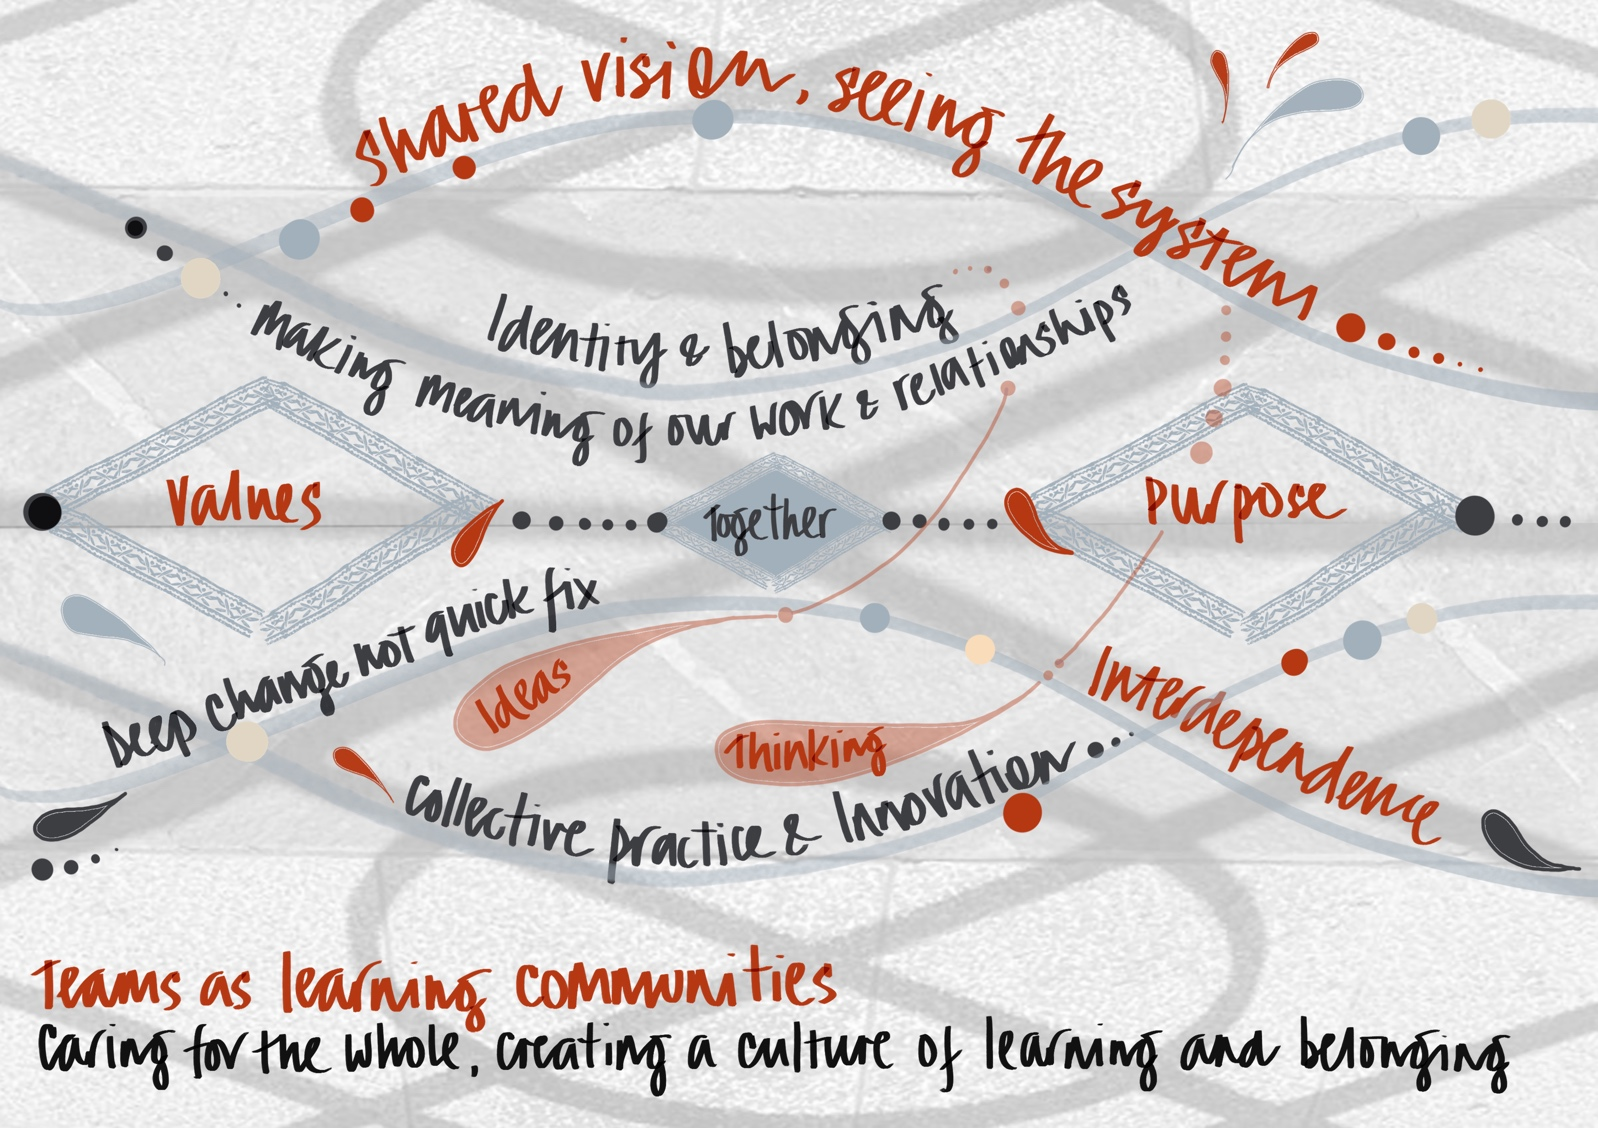 Shared vision, seeing the system
Identity & belonging
Making meaning of our work & relationships
Values
Together
Purpose
Deep change not quick fix
Ideas
Thinking
Interdependence
Collective practice & Innovation
Teams as learning communities
Caring for the whole, creating a culture of learning and belonging